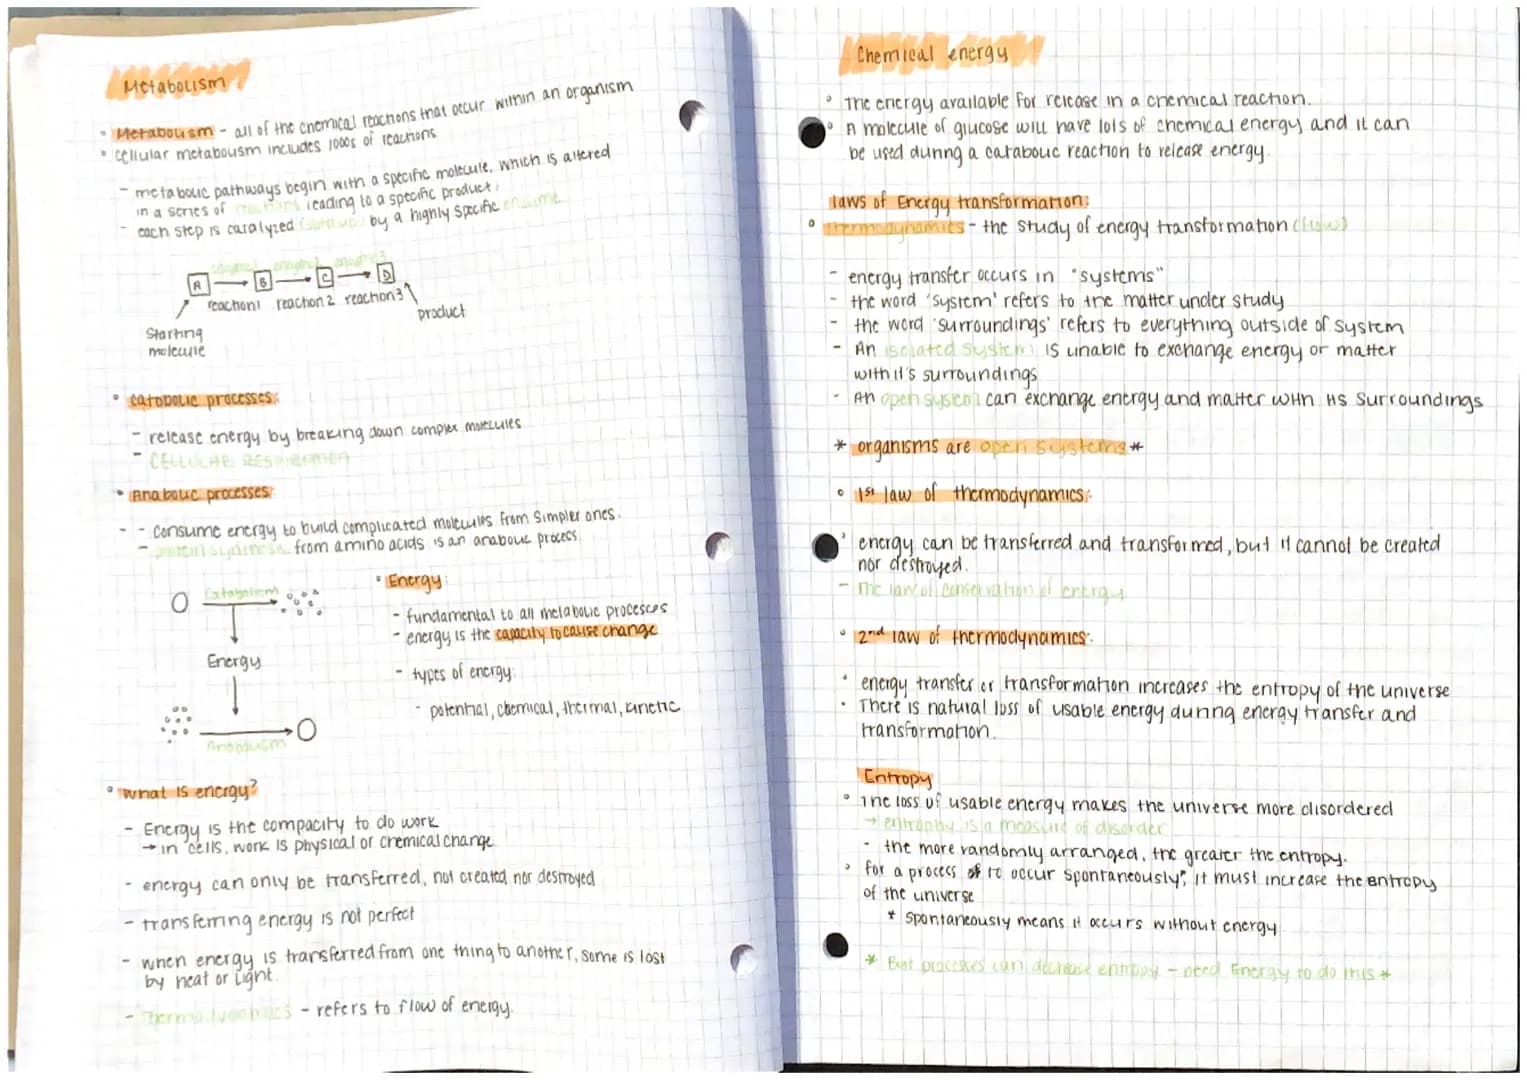 Metabolism
• Metabolism - all of the chemical reactions that occur within an organism
• cellular metabolism includes 1000s of reactions
- metabolic pathways begin with a specific molecule, which is altered
in a series of reactions leading to a specific product.
- each step is catalyzed by a highly specific enzyme
enzyme1 enzyme2 enzyme3
A B C D
reaction1 reaction2 reaction3
product
Starting
molecule
• catobolic processes:
- release energy by breaking down complex molecules
- CELLULAR RESPIRATION
• Anabolic processes:
- - consume energy to build complicated molecules from simpler ones.
- protein synthesis from amino acids is an anabolic process
Catabolism
Energy
Anabolism
• Energy:
- fundamental to all metabolic processes
- energy is the capacity to cause change
- types of energy:
- potential, chemical, thermal, kinetic
• what is energy?
- Energy is the compacity to do work
→ in cells, work is physical or chemical change
- energy can only be transferred, not created nor destroyed
- transferring energy is not perfect
- when energy is transferred from one thing to another, some is lost
by heat or light.
- Thermodynamics - refers to flow of energy.
Chemical energy
• The energy available for release in a chemical reaction.
• A molecule of glucose will have lots of chemical energy and it can
be used during a catabolic reaction to release energy.
laws of Energy transformation:
• thermodynamics - the study of energy transformation (flow)
- energy transfer occurs in "systems"
- the word 'system' refers to the matter under study
- the word 'surroundings' refers to everything outside of system
- An isolated system is unable to exchange energy or matter
with it's surroundings
- An open system can exchange energy and matter with its surroundings
* organisms are open systems *
• 1st law of thermodynamics:
• energy can be transferred and transformed, but it cannot be created
nor destroyed.
- the law of conservation of energy
• 2nd law of thermodynamics:
• energy transfer or transformation increases the entropy of the universe
• There is natural loss of usable energy during energy transfer and
transformation.
Entropy
• The loss of usable energy makes the universe more disordered
→ entrophy is a measure of disorder
- the more randomly arranged, the greater the entropy.
• for a process to occur spontaneously*, it must increase the entropy
of the universe
* Spontaneously means it occurs without energy
* But processes can decrease entropy - need Energy to do this *